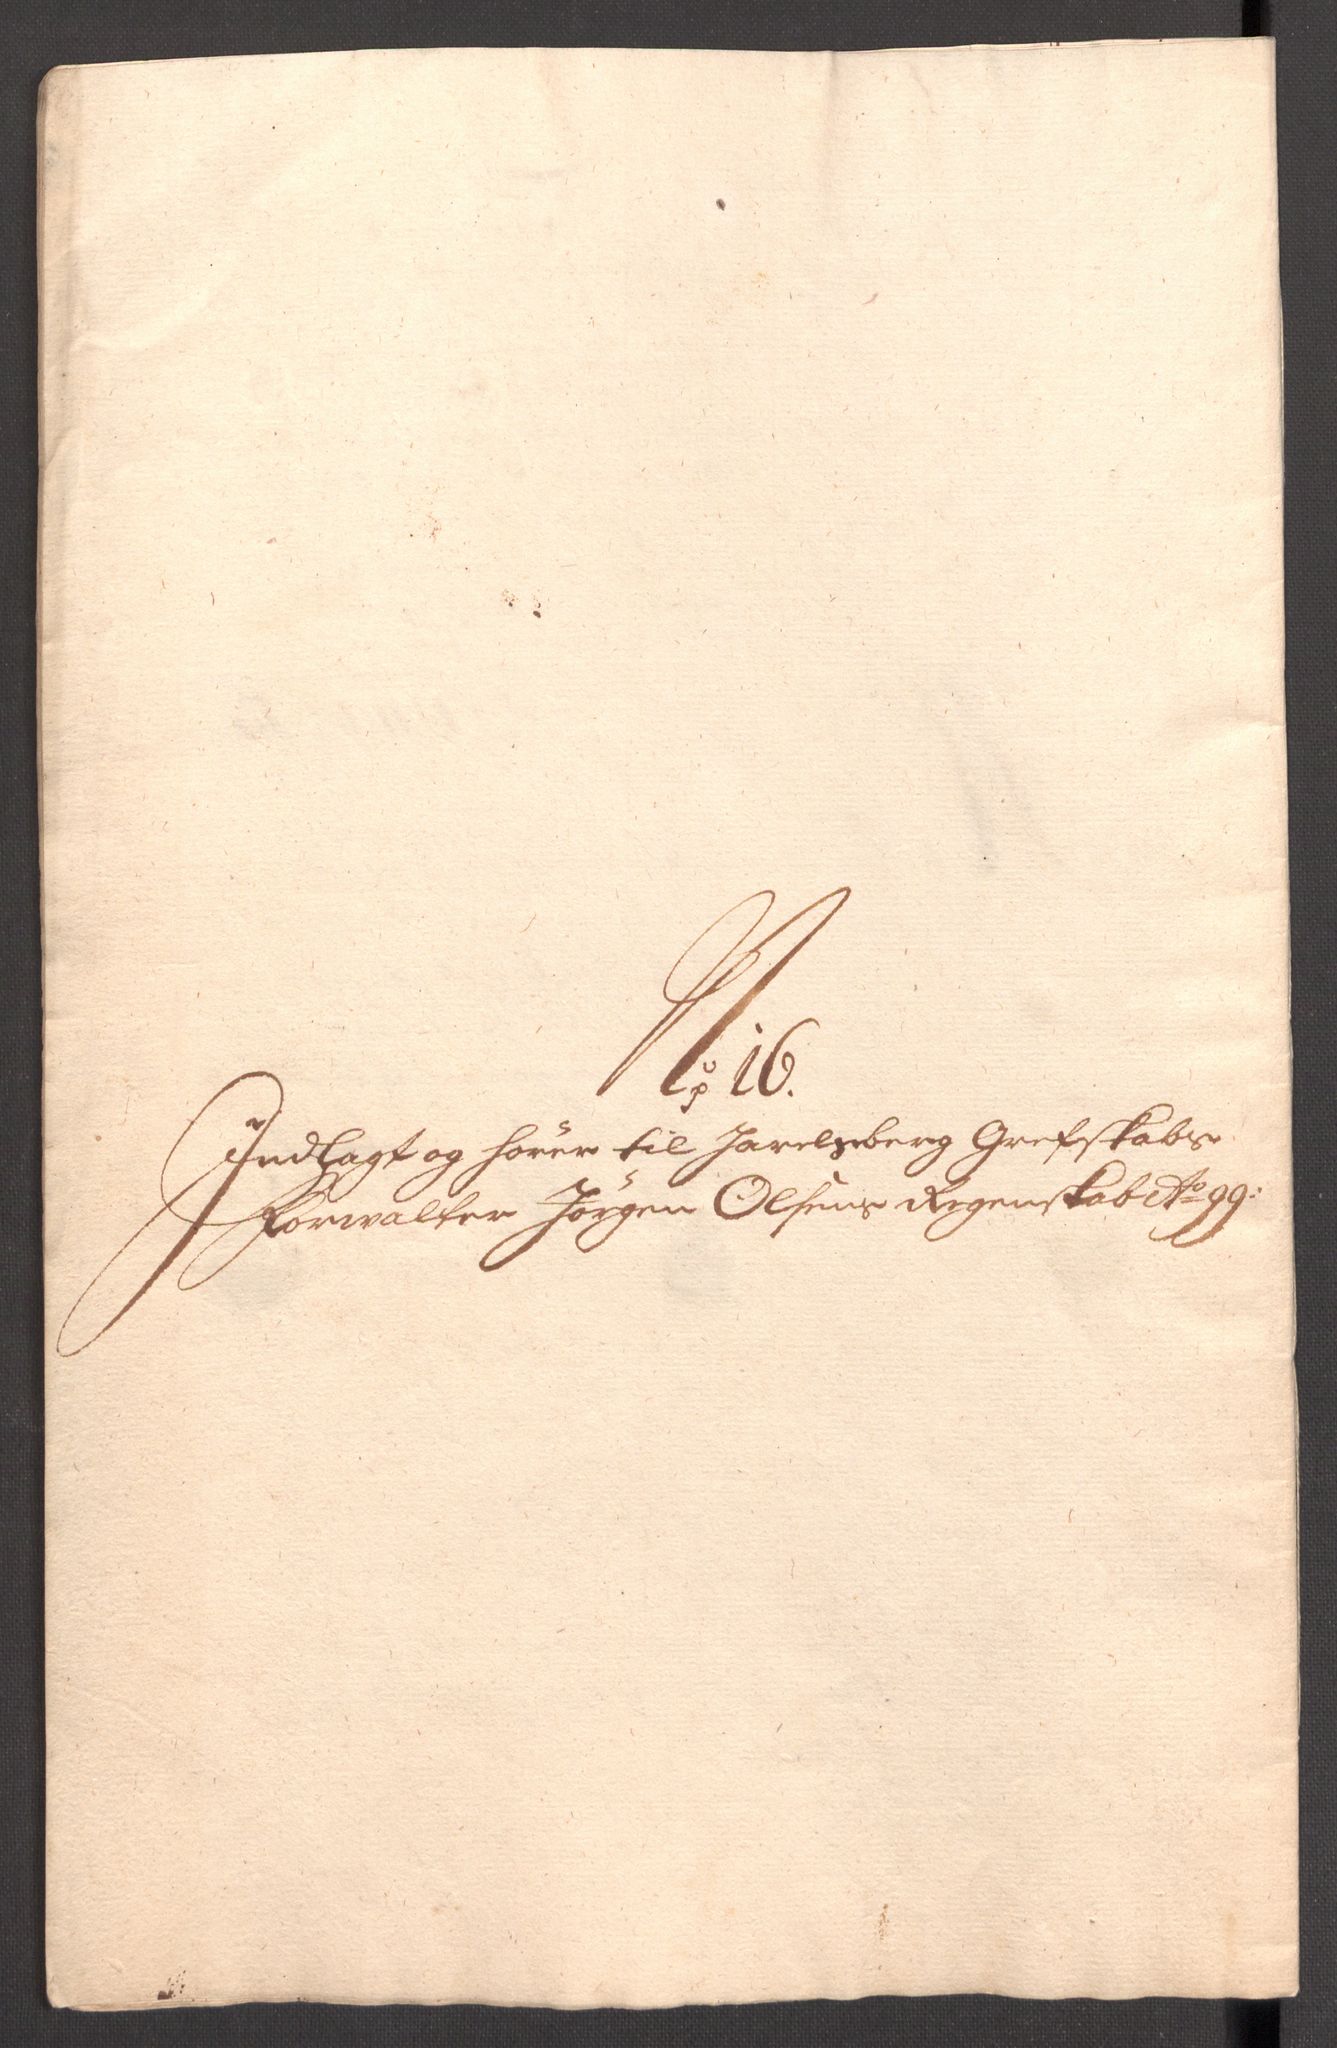 No 16.
Indlagt og hörer til Jarelsberg Grefskabs
Forwalter Jörgen Olsens Regenskab Ao 99: